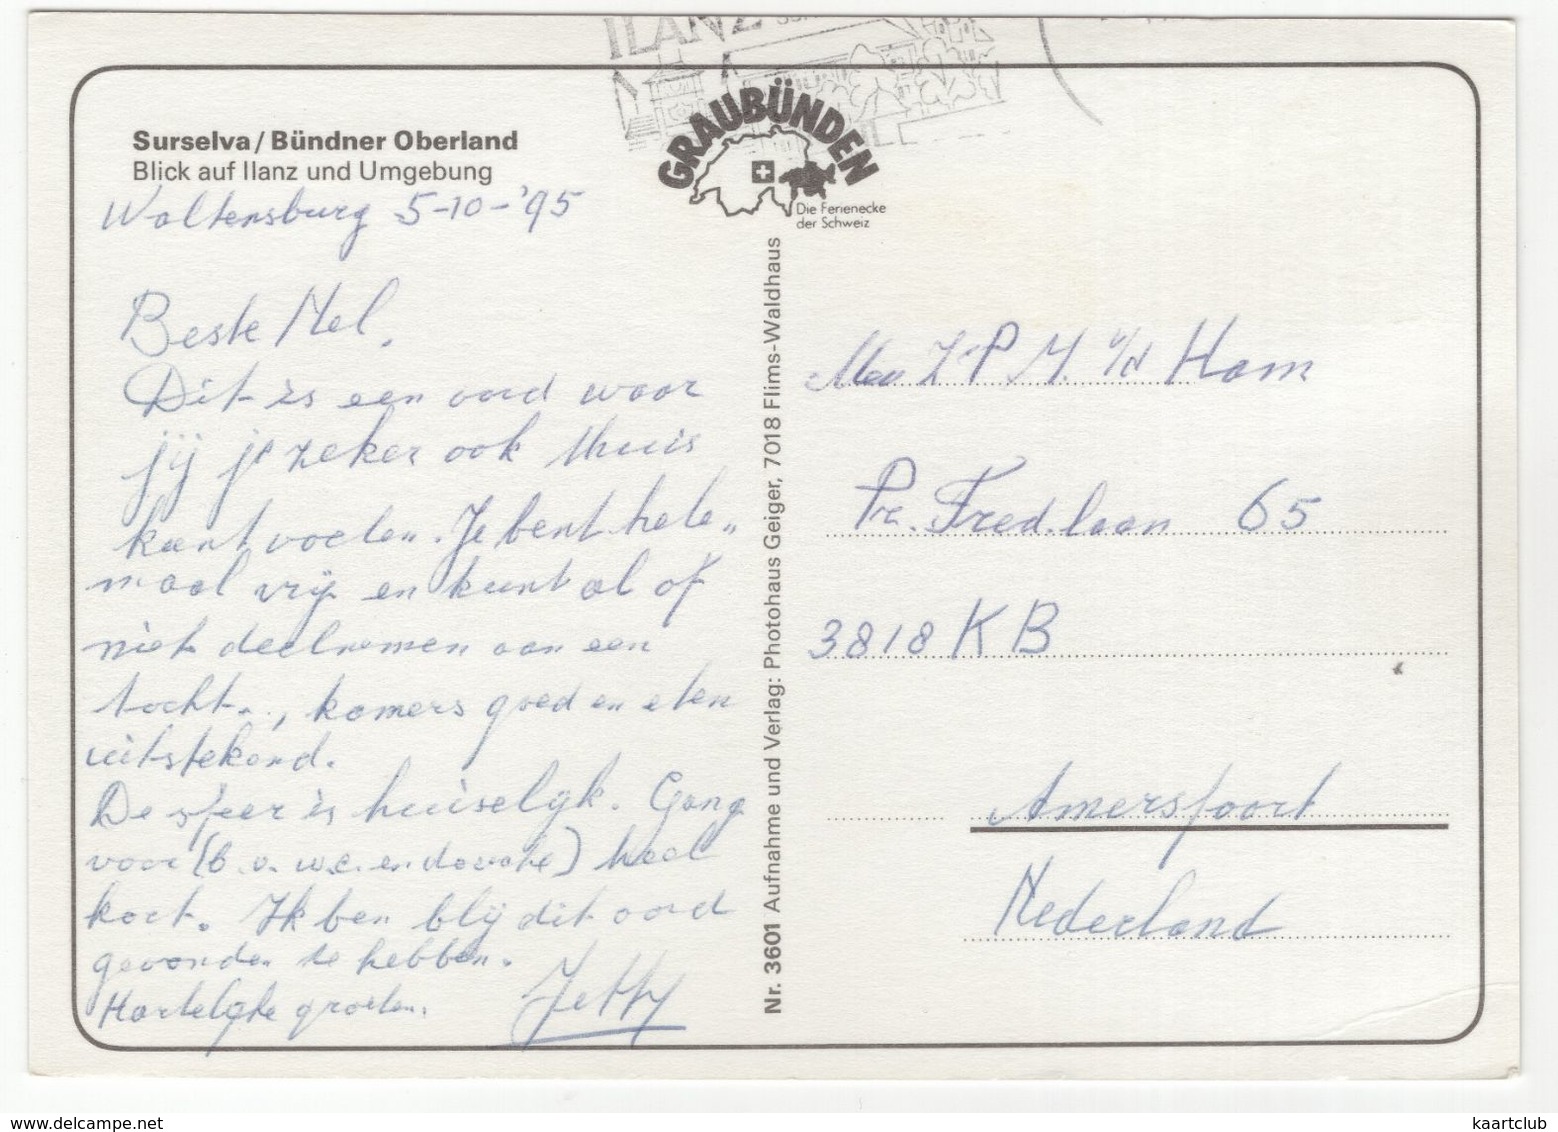 ILANZ
GRAUBÜNDEN
Die Ferienecke
der Schweiz
Surselva / Bündner Oberland
Blick auf Ilanz und Umgebung
Waltensburg 5-10-'95
Beste Mel.
Dit is een oord waar
jij je zeker ook thuis
kunt voelen. Je bent hele„
maal vrij en kunt al of
niet deelnemen aan een
tocht., kamers goed en eten
uitstekend.
De sfeer is huiselijk. Gang
voor (b.v. w.c. en douche) heel
kort. Ik ben blij dit oord
gevonden te hebben.
Hartelijke groeten.
Jetty
Nr. 3601 Aufnahme und Verlag: Photohaus Geiger, 7018 Flims-Waldhaus
P M. v/d Ham
Pr. Fred.laan 65
3818 KB
Amersfoort
Nederland
kaartclub